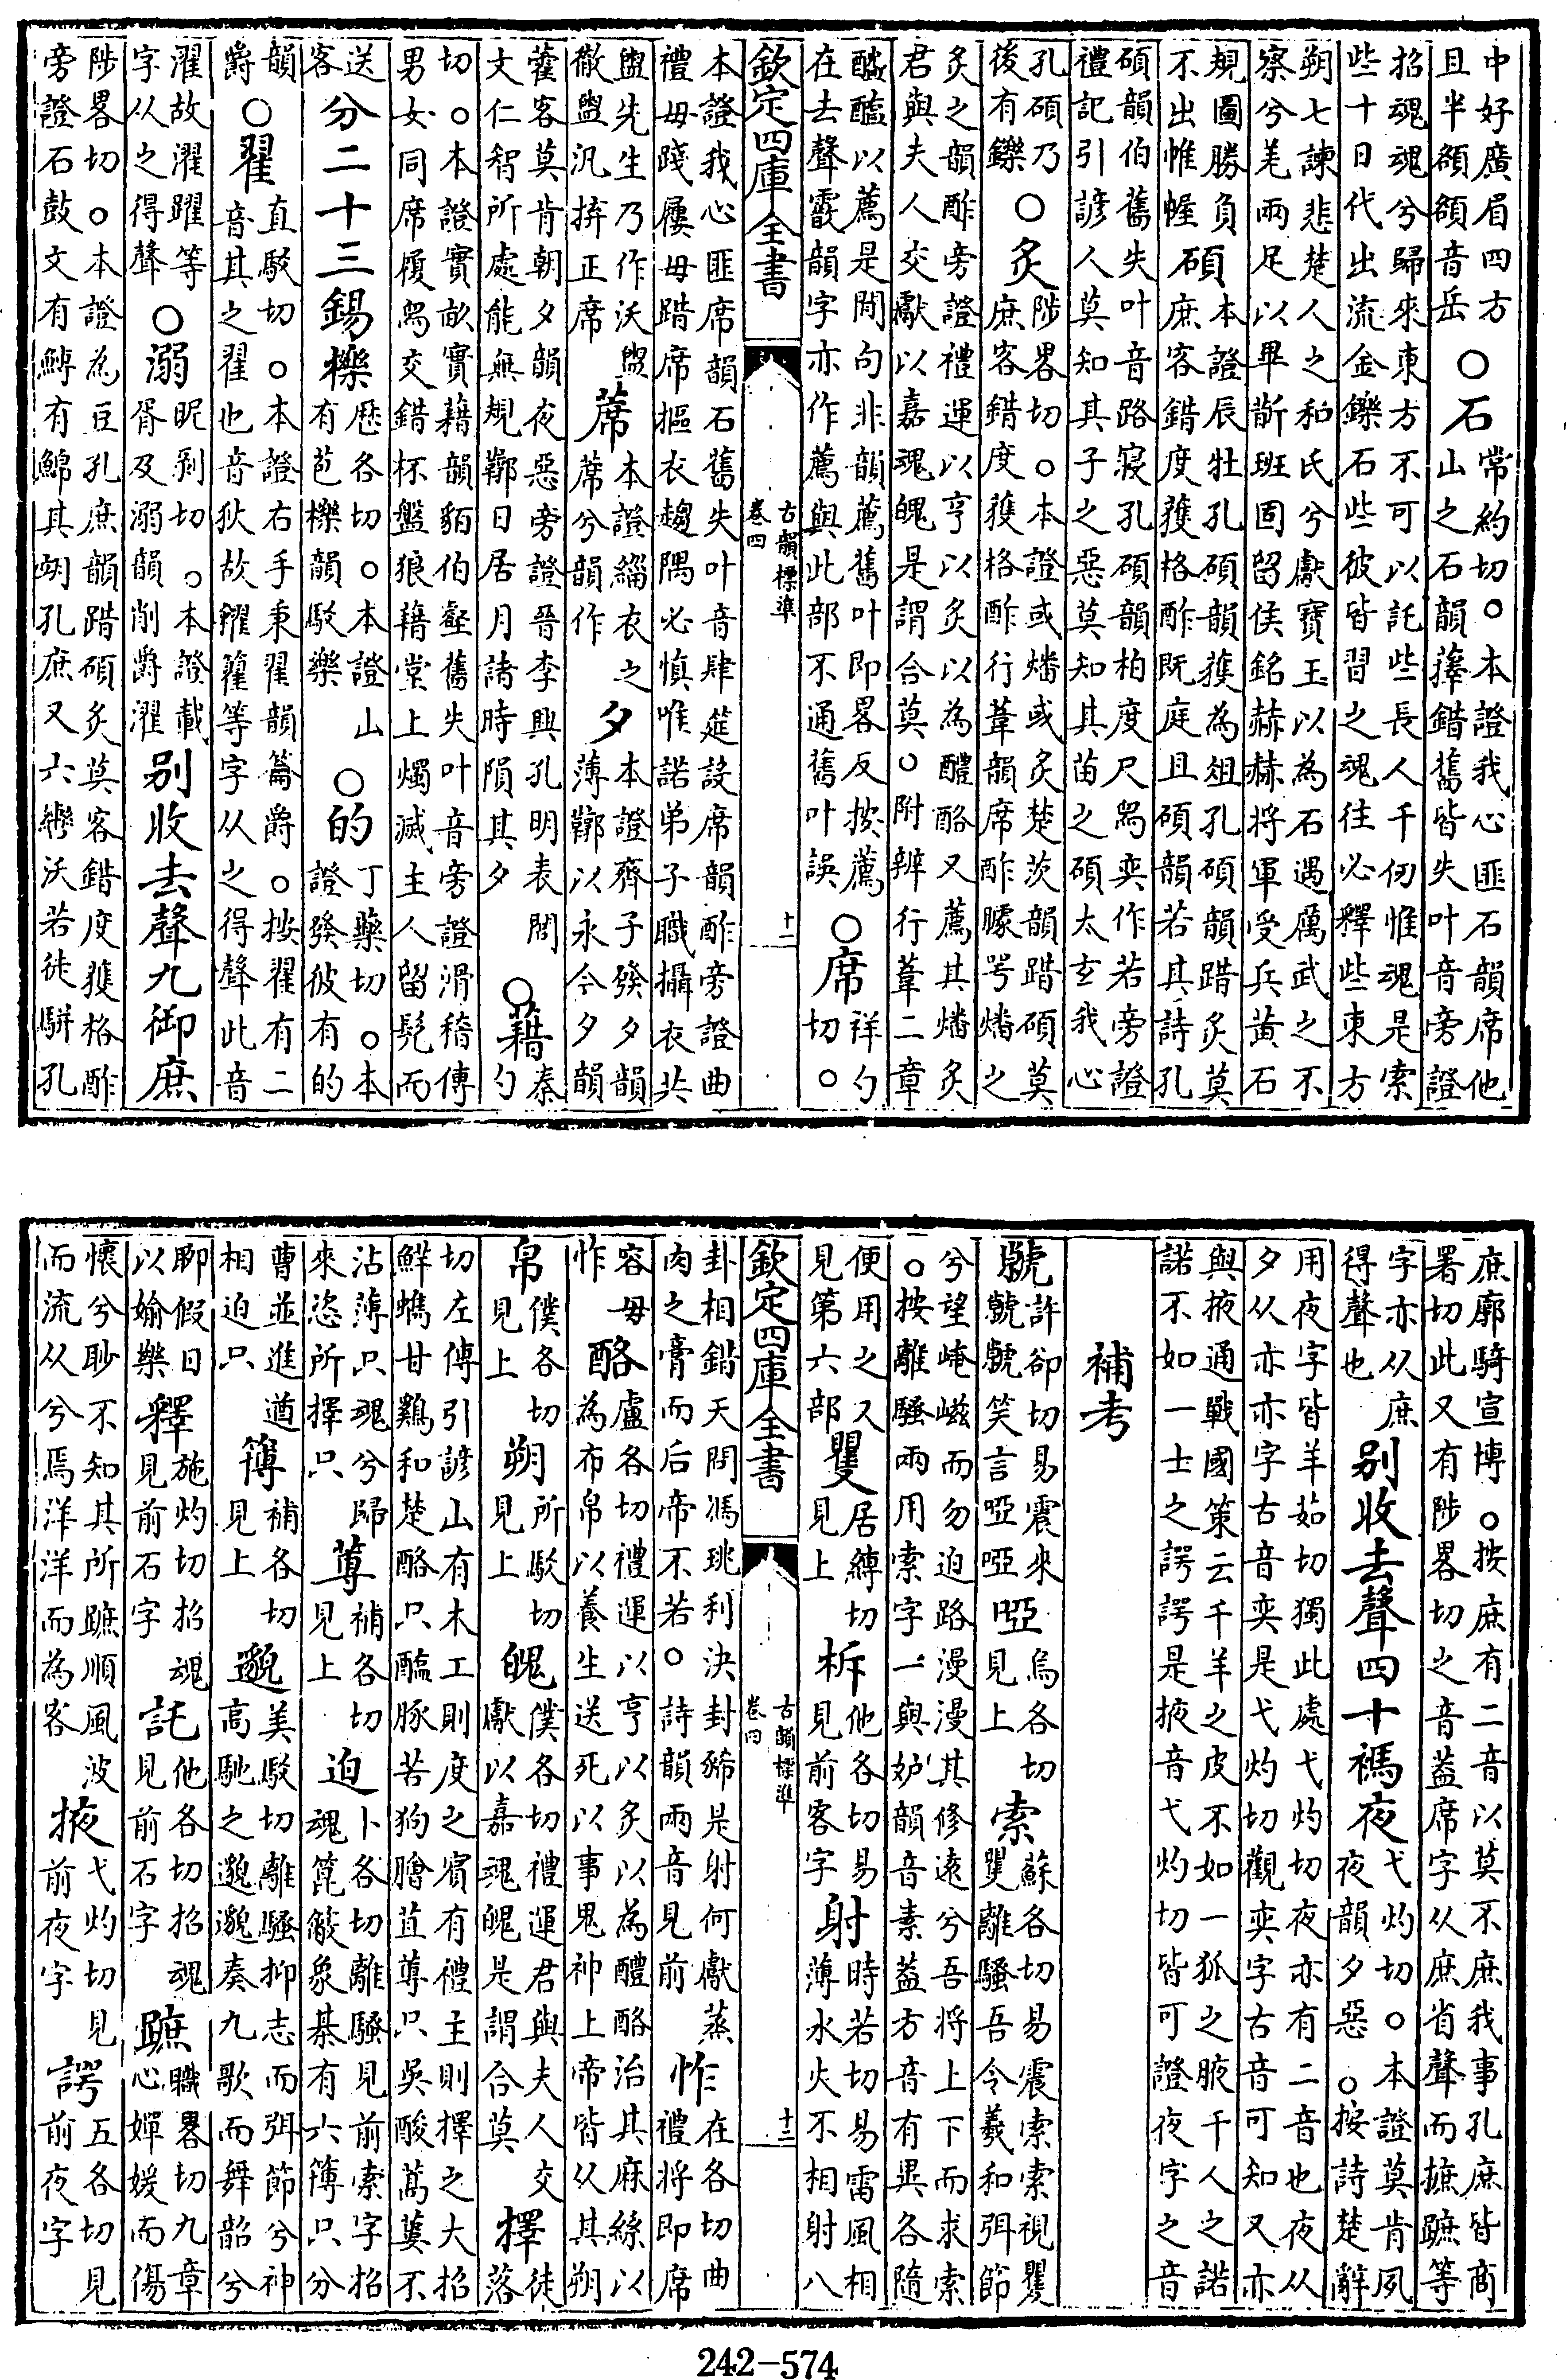 中好廣眉四方且半額額音岳○石常約切。本證我心匪石韻席他山之石韻蘀錯舊皆失叶音旁證
招魂魂兮歸來東方不可以託些長人千仞惟魂是索些十日代出流金鑠石些彼皆習之魂往必釋些東方
朔七諫悲楚人之和氏兮獻寶玉以為石遇厲武之不察兮羌兩足以畢斮班固留侯銘赫赫將軍受兵黃石
規圖勝負不出帷幄碩本證辰牡孔碩韻獲為俎孔碩韻踖炙莫庶客錯度獲格酢既庭且碩韻若其詩孔
碩韻伯舊失叶音路寢孔碩韻柏度尺舄奕作若旁證禮記引諺人莫知其子之惡莫知其苗之碩太玄我心
孔碩乃後有鑠○炙陟畧切。本證或燔或炙楚茨韻踖碩莫庶客錯度獲格酢行葦韻席酢臄咢燔之
炙之韻酢旁證禮運以亨以炙以為醴酪又薦其燔炙君與夫人交獻以嘉魂魄是謂合莫。附辨行葦二章
醓醢以薦是間句非韻薦舊叶即畧反按薦在去聲霰韻字亦作薦與此部不通舊叶誤○席祥勺切。
欽定四庫全書 古韻標準 卷四 十二
本證我心匪席韻石舊失叶音肆筵設席韻酢旁證曲禮毋踐屨毋踖席摳衣趨隅必慎唯諾弟子職攝衣共
盥先生乃作沃盥徹盥汎拚正席蓆本證緇衣之蓆兮韻作夕本證齊子發夕韻薄鞹以永今夕韻
藿客莫肯朝夕韻夜惡旁證晉李興孔明表間文仁智所處能無規鄰日居月諸時隕其夕○籍秦勺
切。本證實畝實籍韻貊伯壑舊失叶音旁證滑稽傳男女同席履舄交錯杯盤狼藉堂上燭滅主人留髡而
送客分二十三錫櫟歷各切。本證山有苞櫟韻駮樂○的丁藥切。本證發彼有的
韻爵○翟直駮切。本證右手秉翟韻籥爵。按翟有二音其之翟也音狄故糴籊等字从之得聲此音
濯故濯躍等字从之得聲○溺昵剝切。本證載胥及溺韻削爵濯別收去聲九御庶
陟畧切。本證為豆孔庶韻踖碩炙莫客錯度獲格酢旁證石鼓文有鱄有鯿其朔孔庶又六轡沃若徒駢孔
庶廓騎宣博。按庶有二音以莫不庶我事孔庶皆商署切此又有陟畧切之音蓋席字从庶省聲而摭蹠等
字亦从庶得聲也別收去聲四十禡夜弋灼切。本證莫肯夙夜韻夕惡。按詩楚辭
用夜字皆羊茹切獨此處弋灼切夜亦有二音也夜从夕从亦亦字古音奕是弋灼切觀奕字古音可知又亦
與掖通戰國策云千羊之皮不如一狐之腋千人之諾諾不如一士之諤諤是掖音弋灼切皆可證夜字之音
補考
虩許卻切易震來虩虩笑言啞啞啞烏各切見上索蘇各切易震索索視矍矍離騷吾令羲和弭節
兮望崦嵫而勿迫路漫漫其修遠兮吾將上下而求索。按離騷兩用索字一與妒韻音素蓋方音有異各隨
便用之又見第六部矍居縛切見上柝他各切易見前客字射時若切易雷風相薄水火不相射八
欽定四庫全書 古韻標準 卷四 十三
卦相錯天問馮珧利決封狶是射何獻蒸肉之膏而后帝不若。詩韻兩音見前怍在各切曲禮將即席
容毋怍酪盧各切禮運以亨以炙以為醴酪治其麻絲以為布帛以養生送死以事鬼神上帝皆从其朔
帛僕各切見上朔所駮切見上魄僕各切禮運君與夫人交獻以嘉魂魄是謂合莫擇徒落
切左傳引諺山有木工則度之賓有禮主則擇之大招鮮蠵甘鷄和楚酪只醢豚若狗膾苴蓴只吳酸蒿蔞不
沾薄只魂兮歸來恣所擇只蓴補各切見上迫卜各切離騷見前索字招魂箟蔽象棊有六簙只分
曹並進遒相迫只簙補各切見上邈美駮切離騷抑志而弭節兮神高馳之邈邈奏九歌而舞韶兮
聊假日以婾樂釋施灼切招魂見前石字託他各切招魂見前石字蹠職畧切九章心嬋媛而傷
懷兮眇不知其所蹠順風波而流从兮焉洋洋而為客掖弋灼切見前夜字諤五各切見前夜字
242-574